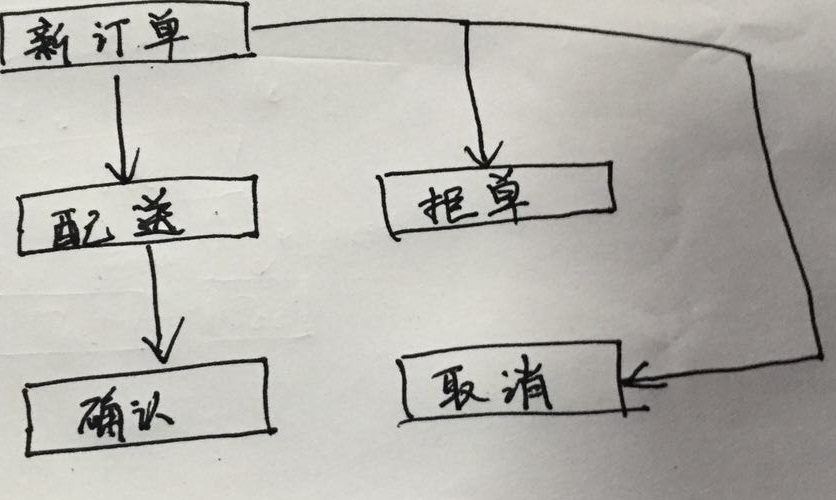 新订单
配送
拒单
确认
取消